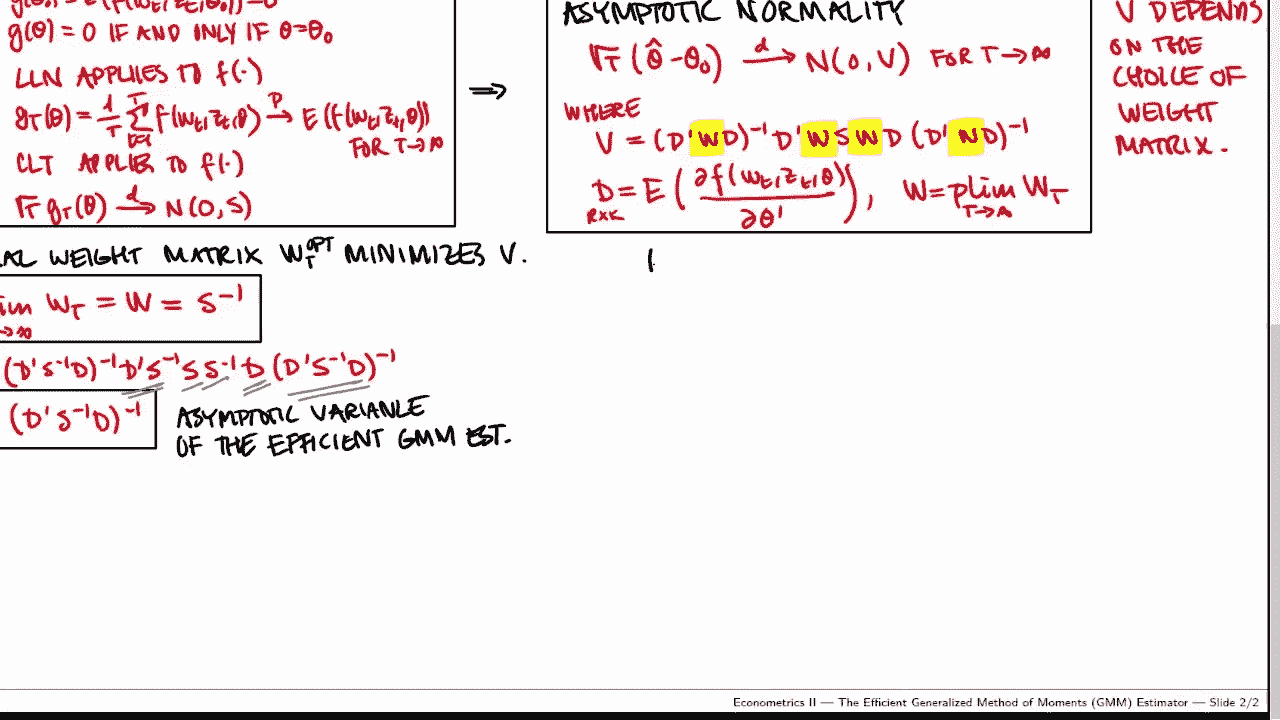 g(θ) = 0 IF AND ONLY IF θ=θ₀
LLN APPLIES TO f(·)
g_T(θ) = 1/T Σ_{t=1}^T f(w_t,z_t,θ) →^P E(f(w_t,z_t,θ))
FOR T→∞
CLT APPLIES TO f(·)
√T g_T(θ) →^d N(0,S)
⇒
ASYMPTOTIC NORMALITY
√T (θ̂ - θ₀) →^d N(0,V) FOR T→∞
WHERE
V = (D'WD)⁻¹ D'WSWD (D'WD)⁻¹
D = E ( ∂f(w_t,z_t,θ) / ∂θ' ) , W = plim W_T
R×K T→∞
V DEPENDS
ON THE
CHOICE OF
WEIGHT
MATRIX.
AL WEIGHT MATRIX W_T^OPT MINIMIZES V.
im W_T = W = S⁻¹
→∞
(D'S⁻¹D)⁻¹D'S⁻¹SS⁻¹D(D'S⁻¹D)⁻¹
(D'S⁻¹D)⁻¹
ASYMPTOTIC VARIANCE
OF THE EFFICIENT GMM EST.
Econometrics II — The Efficient Generalized Method of Moments (GMM) Estimator — Slide 2/2